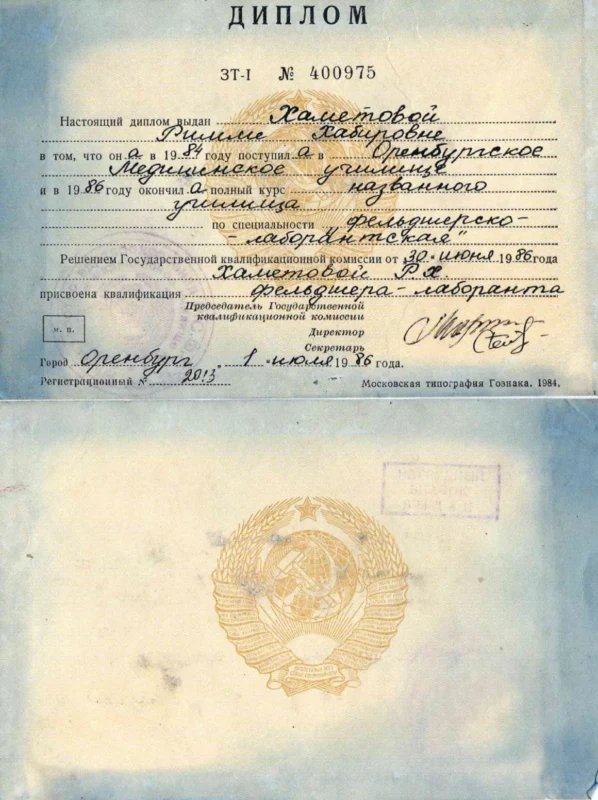 ДИПЛОМ
ЗТ-I № 400975
Настоящий диплом выдан Хаметовой
Римме Хабировне
в том, что он а в 1984 году поступил а в Оренбургское
Медицинское училище
и в 1986 году окончил а полный курс названного
училища
по специальности „фельдшерско-
- лаборантская"
Решением Государственной квалификационной комиссии от 30 июня 1986 года
Хаметовой Р.Х.
присвоена квалификация фельдшера-лаборанта
Председатель Государственной
квалификационной комиссии
Директор
Секретарь
м. п.
Город Оренбург 1 июля 1986 года.
Регистрационный № 2013
Московская типография Гознака. 1984.